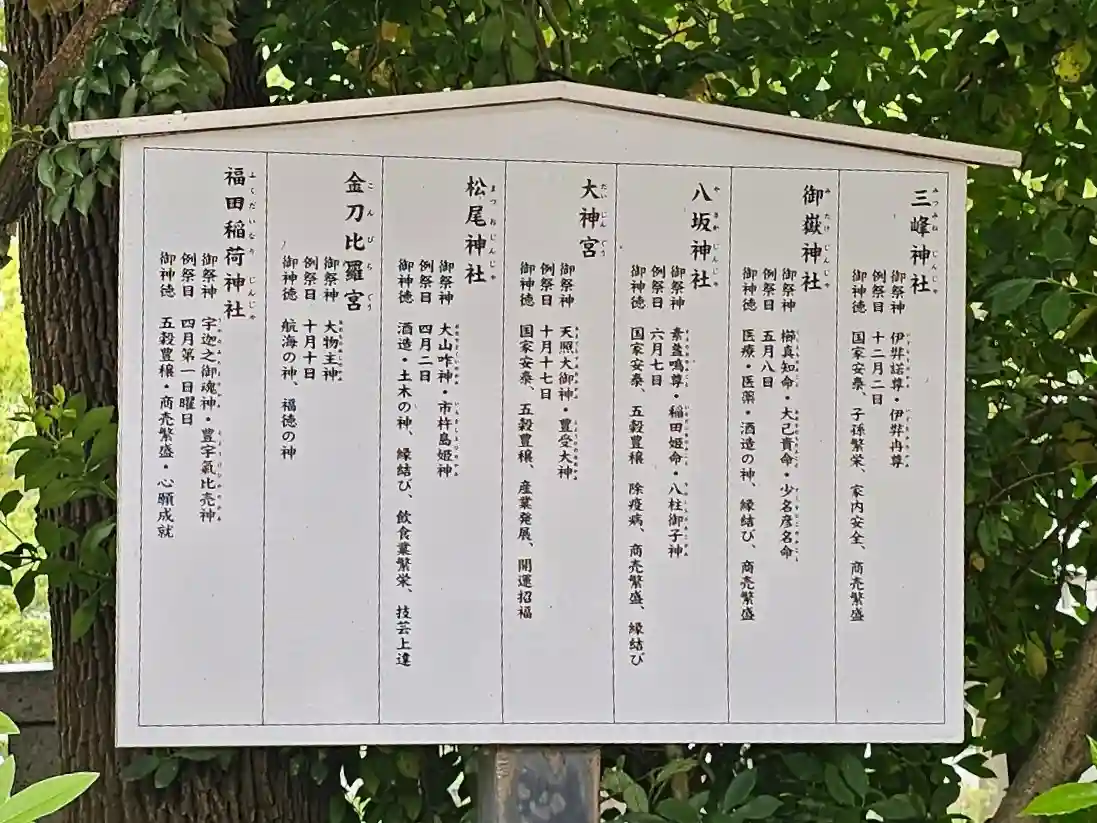 三峰神社
御祭神 伊弉諾尊・伊弉冉尊
例祭日 十二月二日
御神徳 国家安泰、子孫繁栄、家内安全、商売繁盛
御嶽神社
御祭神 櫛真知命・大己貴命・少名彦名命
例祭日 五月八日
御神徳 医療・医薬・酒造の神、縁結び、商売繁盛
八坂神社
御祭神 素盞鳴尊・稲田姫命・八柱御子神
例祭日 六月七日
御神徳 国家安泰、五穀豊穣 除疫病、商売繁盛、縁結び
大神宮
御祭神 天照大御神・豊受大神
例祭日 十月十七日
御神徳 国家安泰、五穀豊穣、産業発展、開運招福
松尾神社
御祭神 大山咋神・市杵島姫神
例祭日 四月二日
御神徳 酒造・土木の神、縁結び、飲食業繁栄、技芸上達
金刀比羅宮
御祭神 大物主神
例祭日 十月十日
御神徳 航海の神、福徳の神
福田稲荷神社
御祭神 宇迦之御魂神・豊宇氣比売神
例祭日 四月第一日曜日
御神徳 五穀豊穣・商売繁盛・心願成就